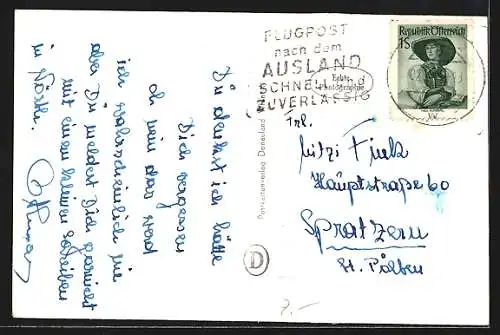 Du denkst ich hätte
Dich vergessen
oh nein das werd
ich wahrscheinlich nie
aber Du meldest Dich garnicht
mit einem kleinen Schreiben
in Wörth.
Othmar
FLUGPOST
nach dem
AUSLAND
SCHNELL und
ZUVERLÄSSIG
Echte
Photographie
Republik Österreich
1S
Postkartenverlag Donauland
D
Frl.
Mitzi Fink
Hauptstraße 60
Spratzern
St. Pölten
7.-